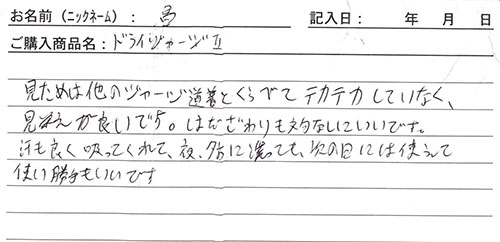 お名前（ニックネーム）： 馬
記入日： 年 月 日
ご購入商品名： ドライジャージⅡ
見ためは他のジャージ道着とくらべてテカテカしていなく、
見栄えが良いです。はだざわりも文句なしにいいです。
汗も良く吸ってくれて、夜、夕方に洗っても、次の日には使えて
使い勝手もいいです